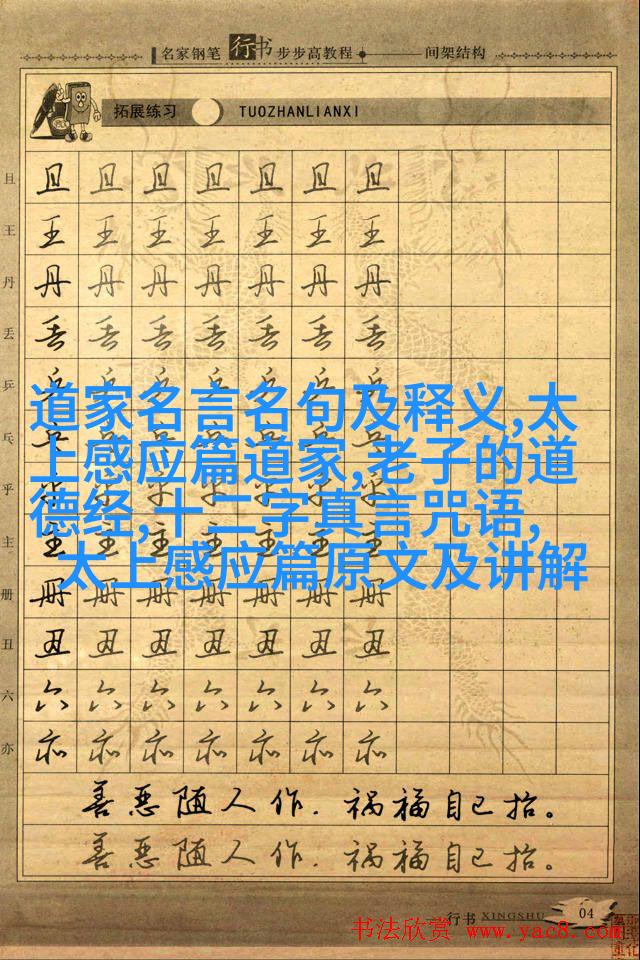 名家钢笔行书步步高教程 间架结构
拓展练习 TUOZHANLIANXI
且 且 且 且 且 且 且 且
王 王 王 王 王 王 王 王
丹 丹 丹 丹 丹 丹 丹 丹
丢 丢 丢 丢 丢 丢 丢 丢
乒 乒 乒 乒 乒 乒 乒 乒
道家名言名句及释义,太
乓 乓 乓 乓 乓 乓 乓 乓
上感应篇道家,老子的道
乎 乎 乎 乎 乎 乎 乎 乎
德经,十二字真言咒语,
主 主 主 主 主 主 主 主
太上感应篇原文及讲解
册 册 册 册 册 册 册 册
丑 丑 丑 丑 丑 丑 丑 丑
六 六 六 六 六 六 六 六
亦 亦 亦 亦 亦 亦 亦 亦
善恶随人作.祸福自己招。
善恶随人作.祸福自己招。
行书 XINGSHU 04
书法欣赏 www.yac8.com